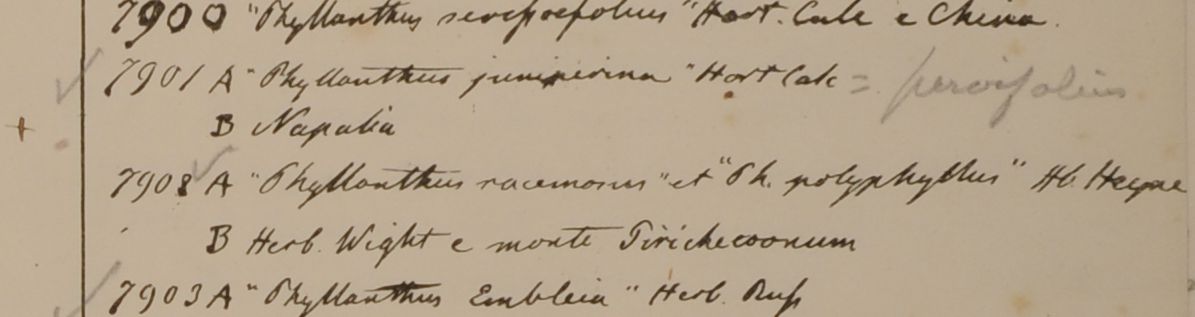 7900 "Phyllanthus serissaefolius" Hort. Calc e China.
7901 A "Phyllanthus juniperina" Hort Calc = parvifolius
B Napalia
7902 A "Phyllanthus racemosus" et "Ph. polyphyllus" Hb. Heyne
B Herb. Wight e monte
7903 A "Phyllanthus Emblica" Herb. Russ